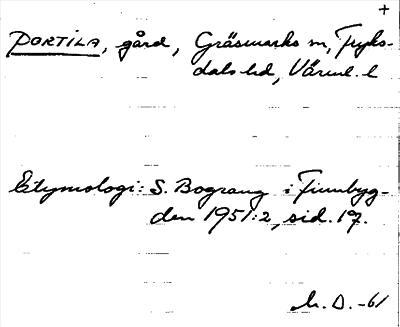 +
PORTILA, gård, Gräsmarks sn, Fryks-
dals hd, Värml. l
Etymologi: S. Bograng i Finnbyg-
den 1951:2, sid. 17.
M. D. -61